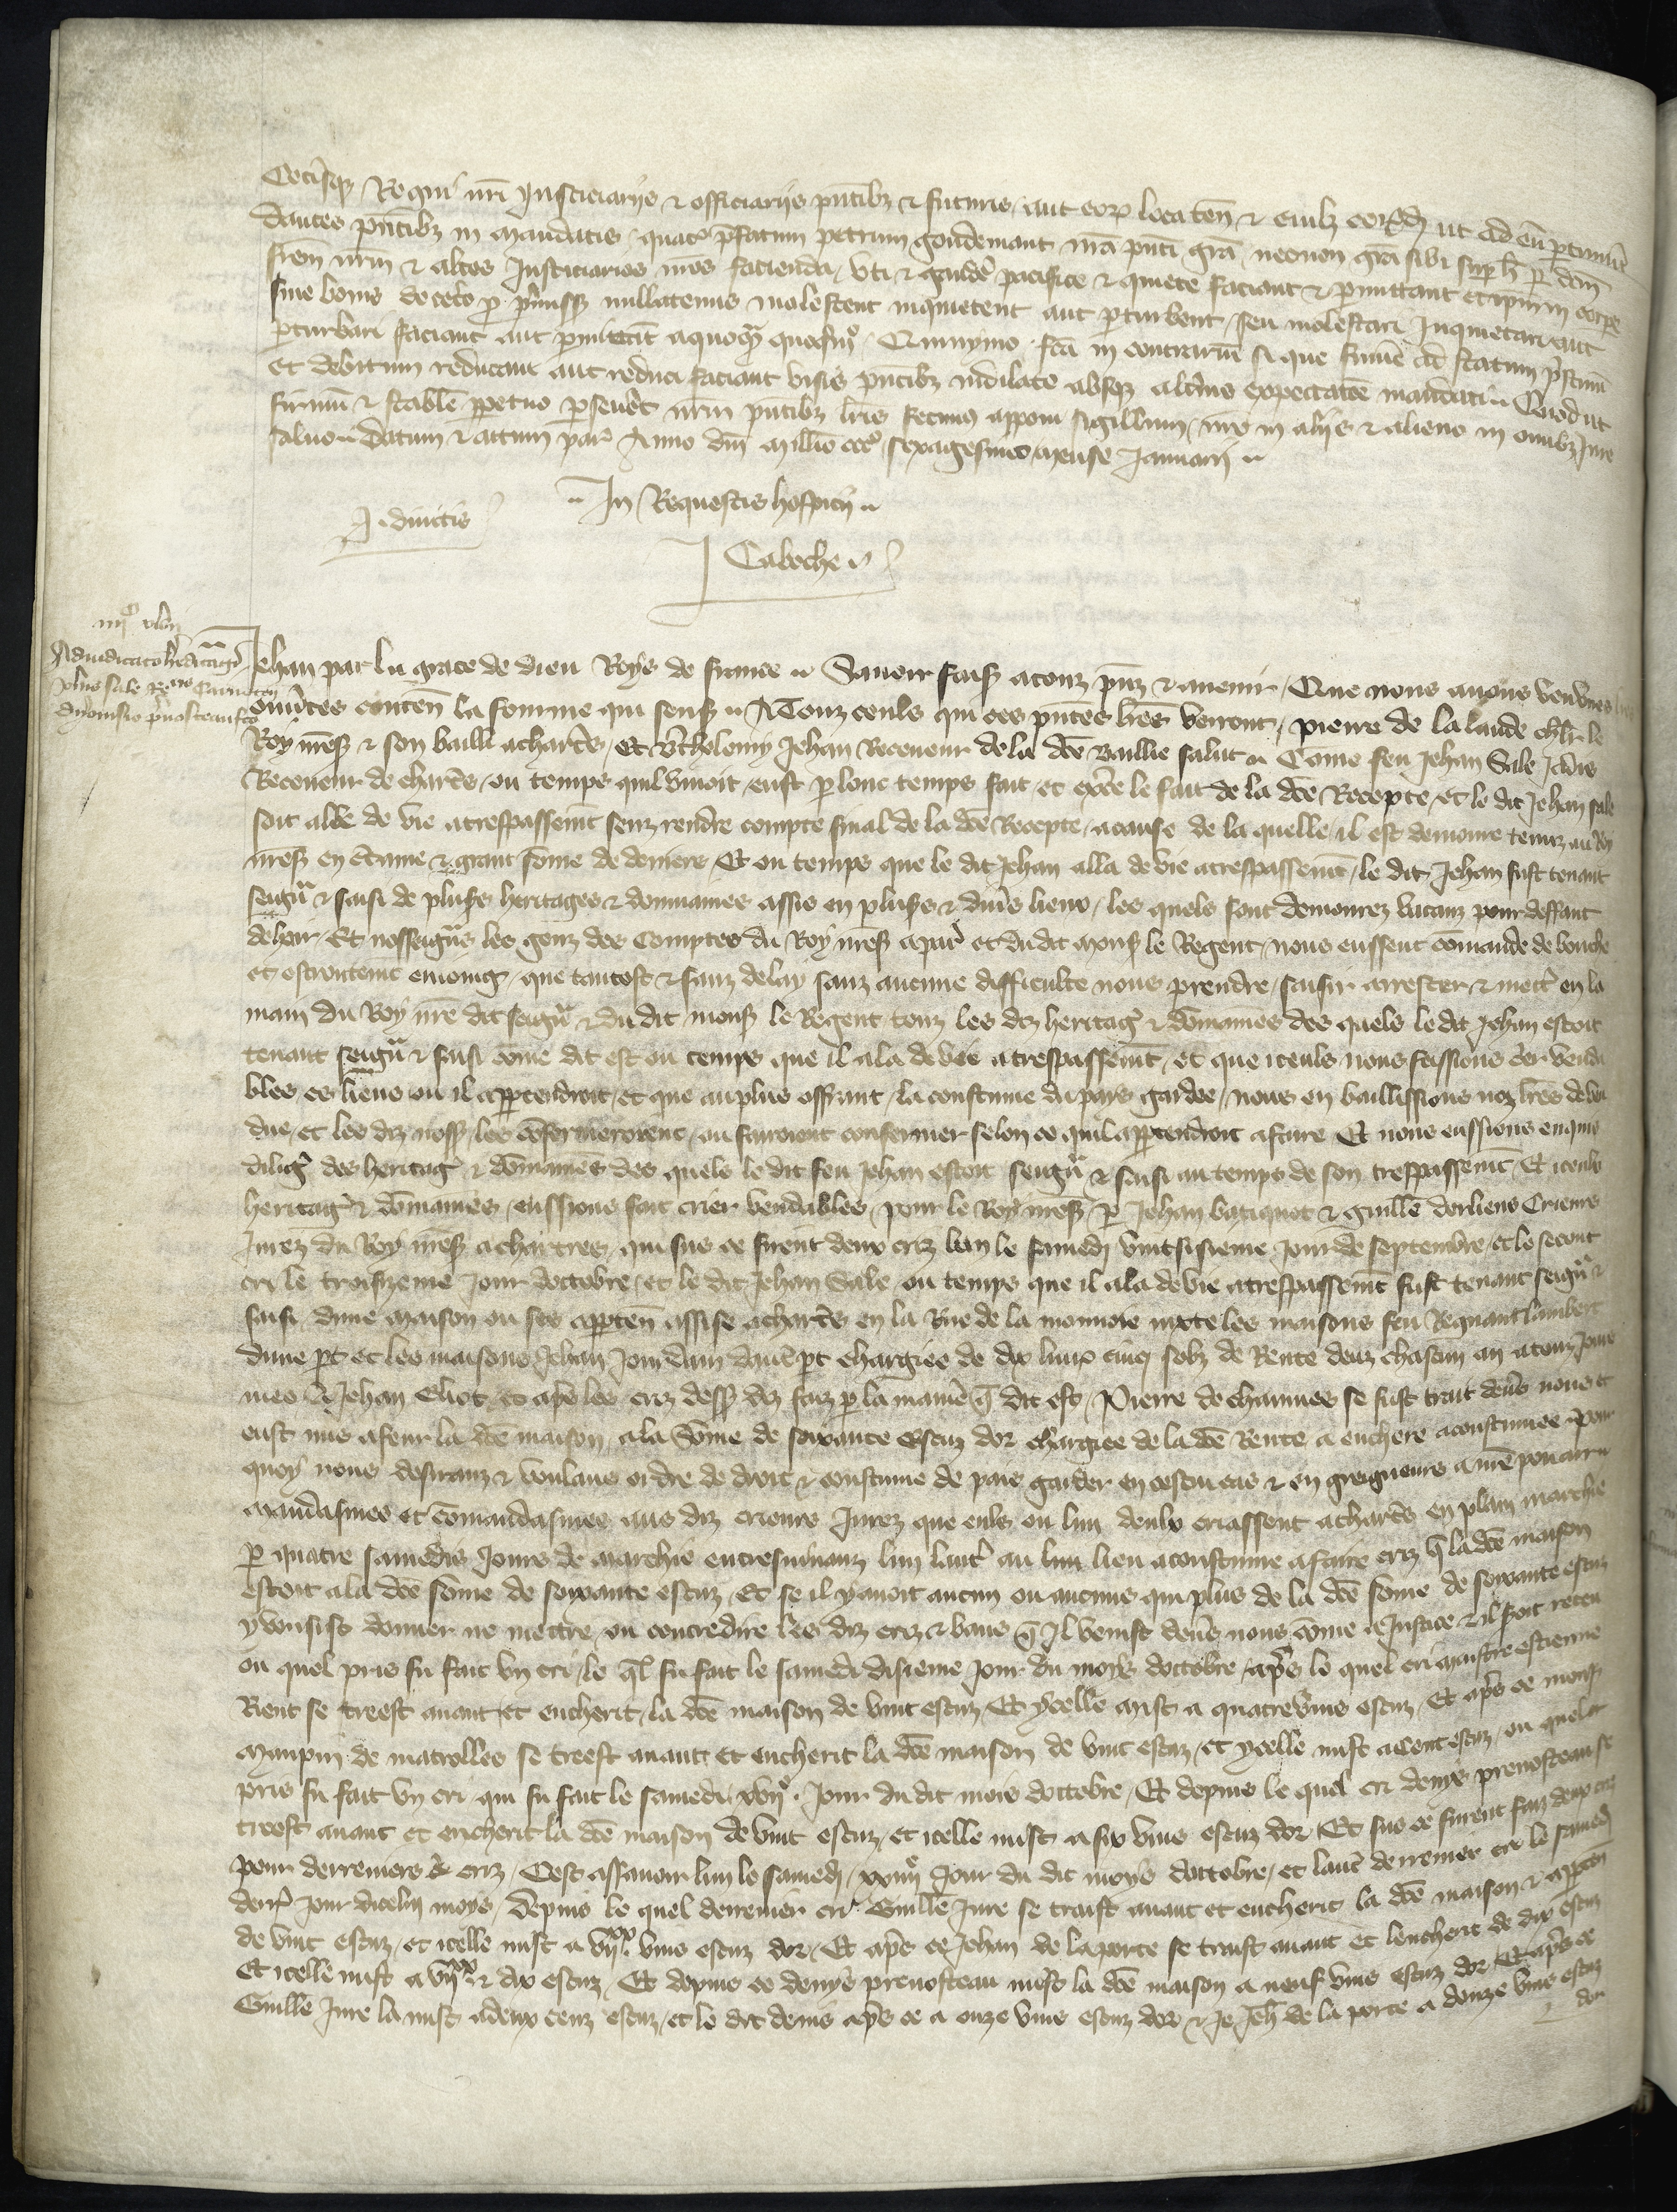 Ceterisq Regni nri Justiciarijs & officiarijs pntibz & futuris aut eorum loca ten & cuilz eorumdem ut ad eu ptinuit
dantes pntibz in mandatis quatin pfatum petrum goudemant nra pnti gra necnon gra sibi sup h p dcm
frem nrm & altos Justiciarios nros facienda uti & gaudere pacifice & quiete faciant & pmittant et ipm in corpe
sive bonis de ceto p pmissis nullatenus molestent inquietent aut pturbent seu molestari Inquietari aut
pturbari faciant aut pmittant a quoqm quomo Quinymo fca in contrarium si que fuint ad statum pstinu
et debitum reducant aut reduci faciant visis pntibz indilate absqz altius expectatoe mandati Quod ut
firmu & stabile ppetuo pseveret nrm pntibz lris fecimus apponi sigillum nro in alijs & alieno in omibz Jure
salvo Datum & actum par Anno dni Millio ccco sexagesimo mense Januarij
In Requestis hospicij
J. divitis
Caboche
iiijc
Adiudicatio hereditagii
Johis Sale Rectoris Carnoten
dyonisio prevosteau fca
Jehan par la grace de dieu Roys de france Savoir faisons a touz psens & avenir Que nous avons veu unes lres
ouvertes conten la fourme qui sensuit A Touz ceuls qui ces pntes lres verront pierre de la lande chlr le
Roy nres & son bailli a chartres Et Btholomy Jehan Receveur de la dce Baillie salut Come feu Jehan Sale Jadis
Receveur de chartres ou temps quil vivoit eust p lonc temps fait et excce le fait de la dce Recepte et le dit Jehan sale
soit alle de vie a trespassemt senz rendre compte final de la dce Recepte a cause de la quelle il est demoure tenuz au Roy
nres en ctaine & grant some de deniers Et ou temps que le dit Jehan alla de vie a trespassemt le dit Jehan fust tenant
seigr & saisi de plusrs heritages & dommaines assis en plusrs & divs lieux les quels sont demourez vacanz pour deffaut
de hoir Et nosseigrs les genz des Comptes du Roy nres a par et du dit mons le Regent nous eussent comande de bouche
et estroitemt enioing que tantost & sanz delay sanz aucune difficulte nous prendre saisir arrester & mettre en la
main du Roy nre dit seigr & du dit mons le Regent touz les diz heritages & domaines des quels le dit Jehan estoit
tenant seigr & saisi come dit est ou temps que il ala de vie a trespassemt et que iceuls nous feissions crier venda
bles es lieus ou il appartendroit et que au plus offrant la coustume du pays gardee nous en baillissions noz lres de ven
due et les diz noss les confermeroient ou feroient confermer selon ce quil appartendroit a faire Et nous eussions enquis
dilig des heritag & domaines des quels le dit feu Jehan estoit seigr & saisi au temps de son trespassemt Et iceulx
heritag & domaines eussions fait crier vendables pour le Roy nres p Jehan batiquet & guille dorliens Crieurs
Jurez du Roy nres a chartres qui sus ce firent deux criz lun le samedi vint sisieme Jour de septembre et le secont
cri le troisyeme Jour doctobre et le dit Jehan Sale ou temps que il ala de vie a trespassemt fust tenant seigr &
saisi dune maison ou ses apparten assise a chartres en la Rue de la monnoie iuxte les maisons feu Regnaut lambert
dune pt et les maisons Jehan Jourdain dautre pt chargiee de dix livrs cinq solz de Rente deuz chascun an a touz Jours
mes a Jehan Eliot et aps les criz dessus diz faiz p la maniere q dit est Pierre de channes se fust trait devs nous et
eust mis a feur la dce maison a la Some de soixante escuz dor chargiee de la dce Rente a enchere acoustumee pour
quoy nous desiranz & voulans ordre de droit & coustume de pais garder en cestui cas & en greigneurs a nre pouair
Mandasmes et comandasmes aus diz crieurs Jurez que euls ou lun deulx criassent a chartres en plain marchie
p quatre samedis Jours de marchie entresuivanz lun lautre au lieu acoustume a faire criz q la dce maison
estoit a la dce some de soixante escuz Et se il y avoit aucun ou aucuns qui plus de la dce some de soixante escuz
y vousist donner ne mettre ou contredire les diz criz & bans q Il venist devs nous come a Justice & il seroit receu
ou quel pris fu fait un cri le ql fu fait le samedi disieme Jour du moys doctobre aps le quel cri maistre estienne
Rient se treest avant et encherit la dce maison de vint escuz Et ycelle mist a quatrevins escuz Et aps ce mons
maupin de matrolles se treest avant et encherit la dce maison de vint escuz et ycelle mist a cent escuz ou quel
pris fu fait un cri qui fu fait le samedi xvije Jour du dit mois doctobre Et depuis le quel cri denys prevosteau se
treest avant et encherit la dce maison de vint escuz et icelle mist a six vins escuz dor Et sus ce furent faiz deux criz
pour derreniers criz Cest assavoir lun le samedi xxiiije Jour du dit moys doctobre et lautre derrenier cri le samedi
derr Jour dicelui moys depuis le quel derrenier cri Guille Jure se traist avant et encherit la dce maison & apparten
de vint escuz et icelle mist a vij vins escuz dor Et aps ce Jehan de la porte se traist avant et lencherit de dix escuz
Et icelle mist a vijxx & dix escuz Et depuis ce denys prevosteau mist la dce maison a neuf vins escuz dor Et aps ce
Guille Jure la mist a deux cenz escuz et le dit denis aps ce a onze vins escuz dor & le Jeh de la porte a douze vins escuz
dor